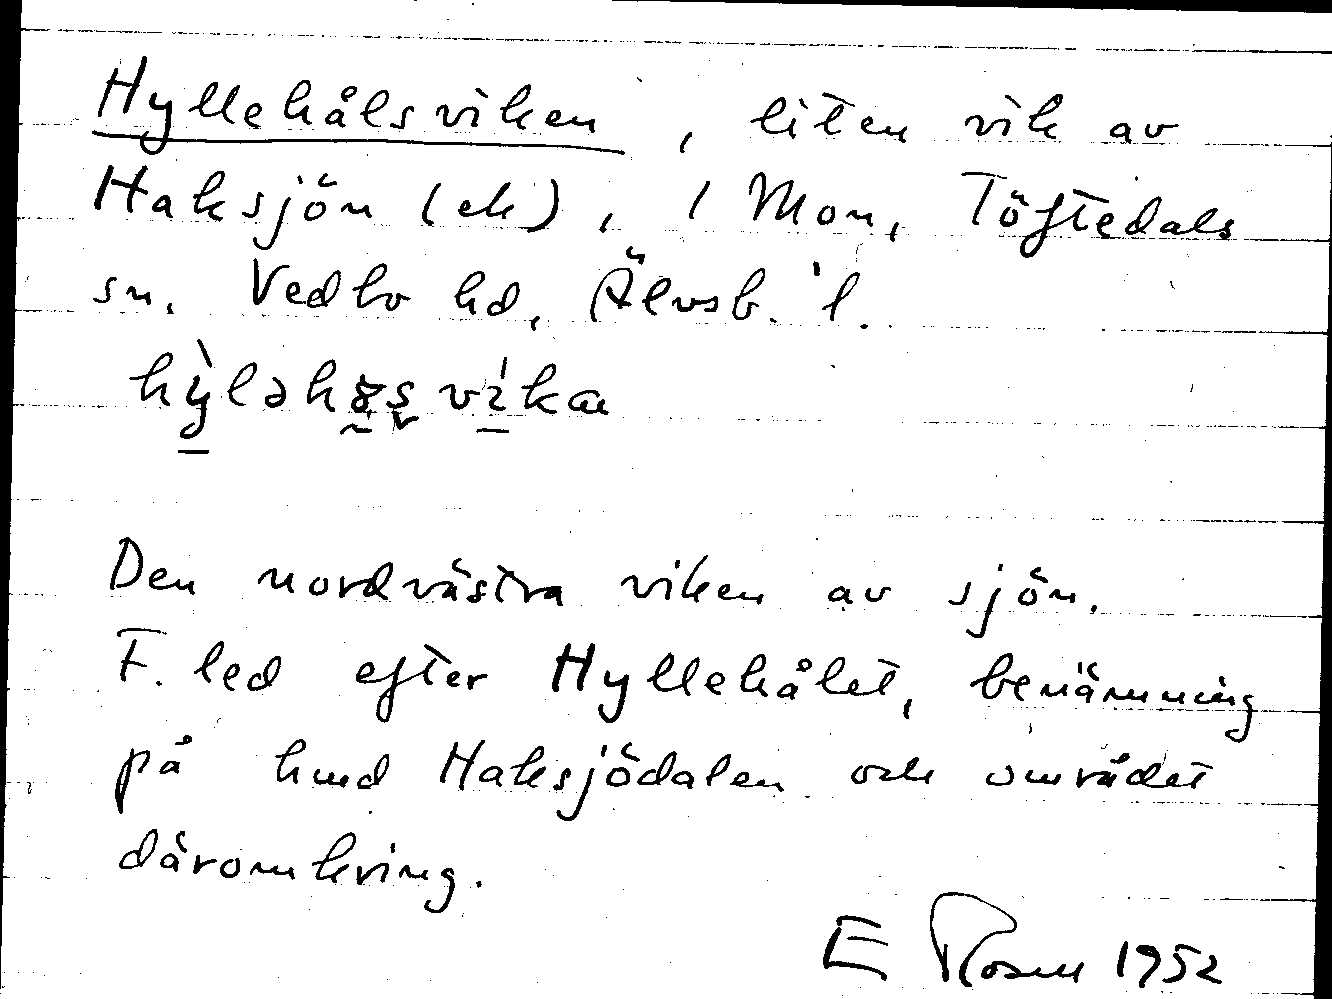 Hyllehålsviken, liten vik av
Haksjön (ek), 1 Mon, Töftedals
sn. Vedbo hd, Älvsb. l.
Den nordvästra viken av sjön.
F. led efter Hyllehålet, benämning
på hmd Haksjödalen och området
däromkring.
E Rosell 1952